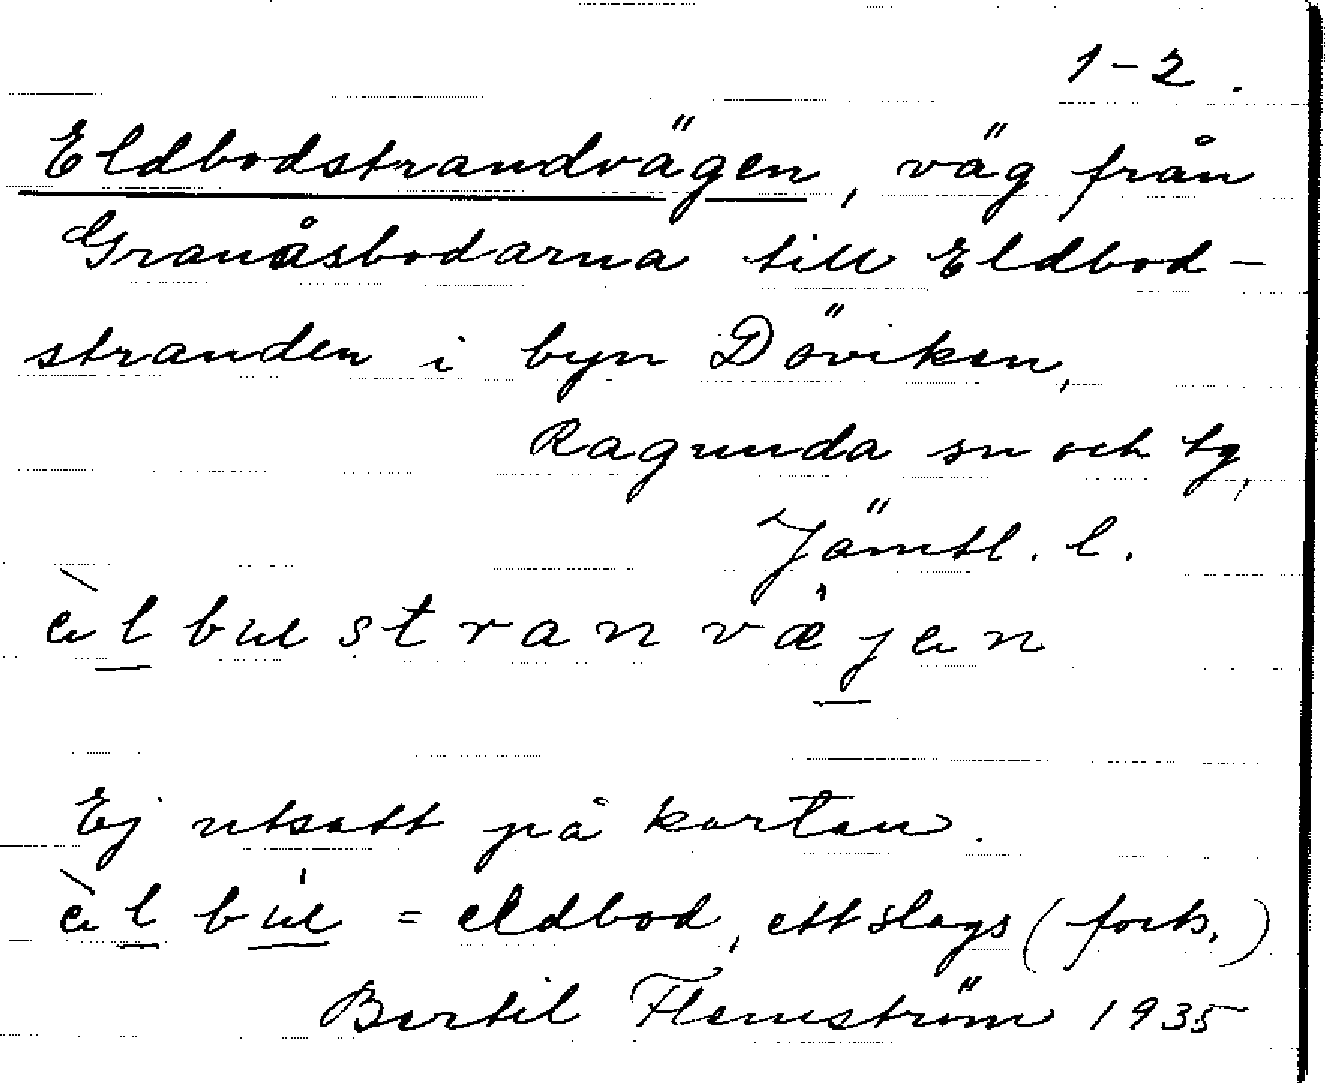 1-2.
Eldbodstrandvägen, väg från
Granåsbodarna till Eldbod-
stranden i byn Döviken,
Ragunda sn och tg,
Jämtl. l.
Ej utsatt på kartan.
= eldbod, ett slags (forts.)
Bertil Flemström 1935